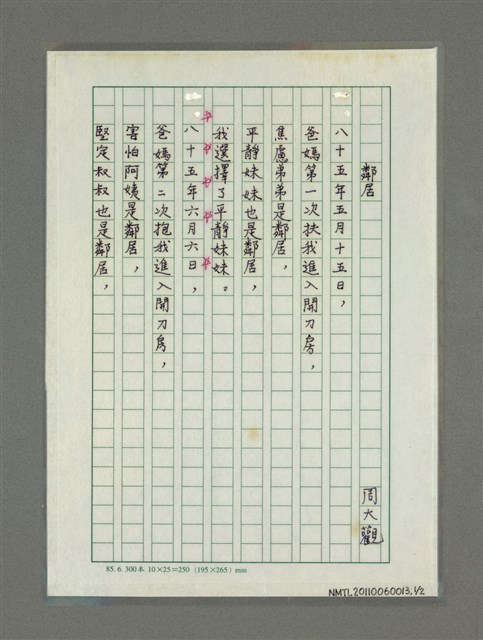 鄰居
周大觀
八十五年五月十五日，
爸媽第一次扶我進入開刀房，
焦慮弟弟是鄰居，
平靜妹妹也是鄰居，
我選擇了平靜妹妹。
八十五年六月六日，
爸媽第二次抱我進入開刀房，
害怕阿姨是鄰居，
堅定叔叔也是鄰居，
85. 6. 300本 10×25=250 (195×265) mm
NMTL20110060013.1/2